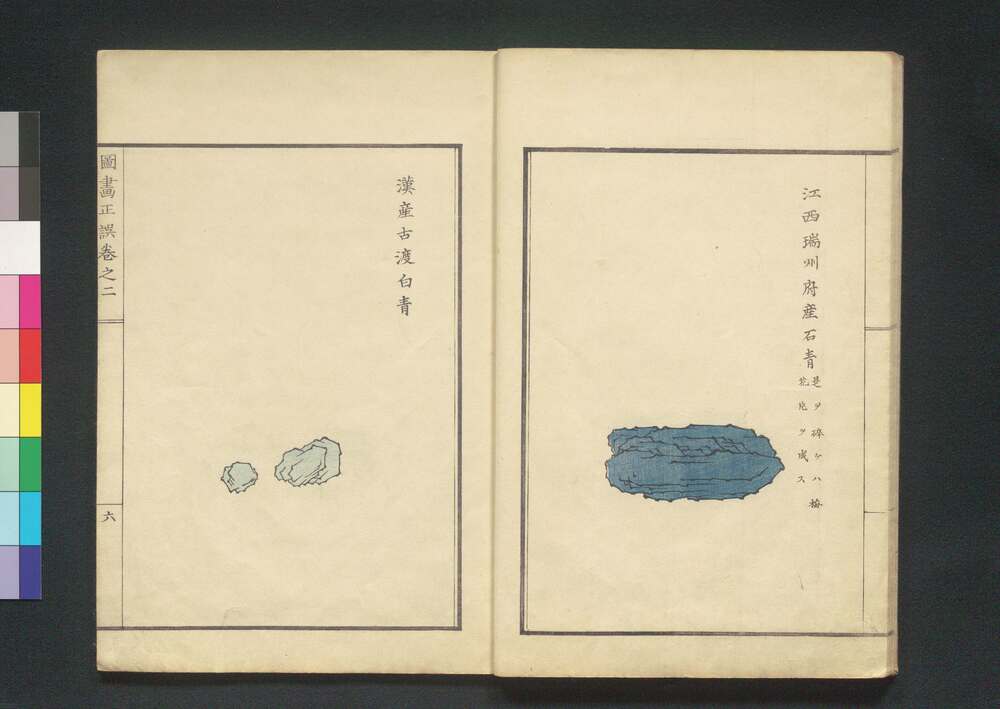 江西瑞州府産石青
是ヲ碎シハ梅
花片ヲ成ス
漢産古渡白青
圖畵正誤卷之二
六